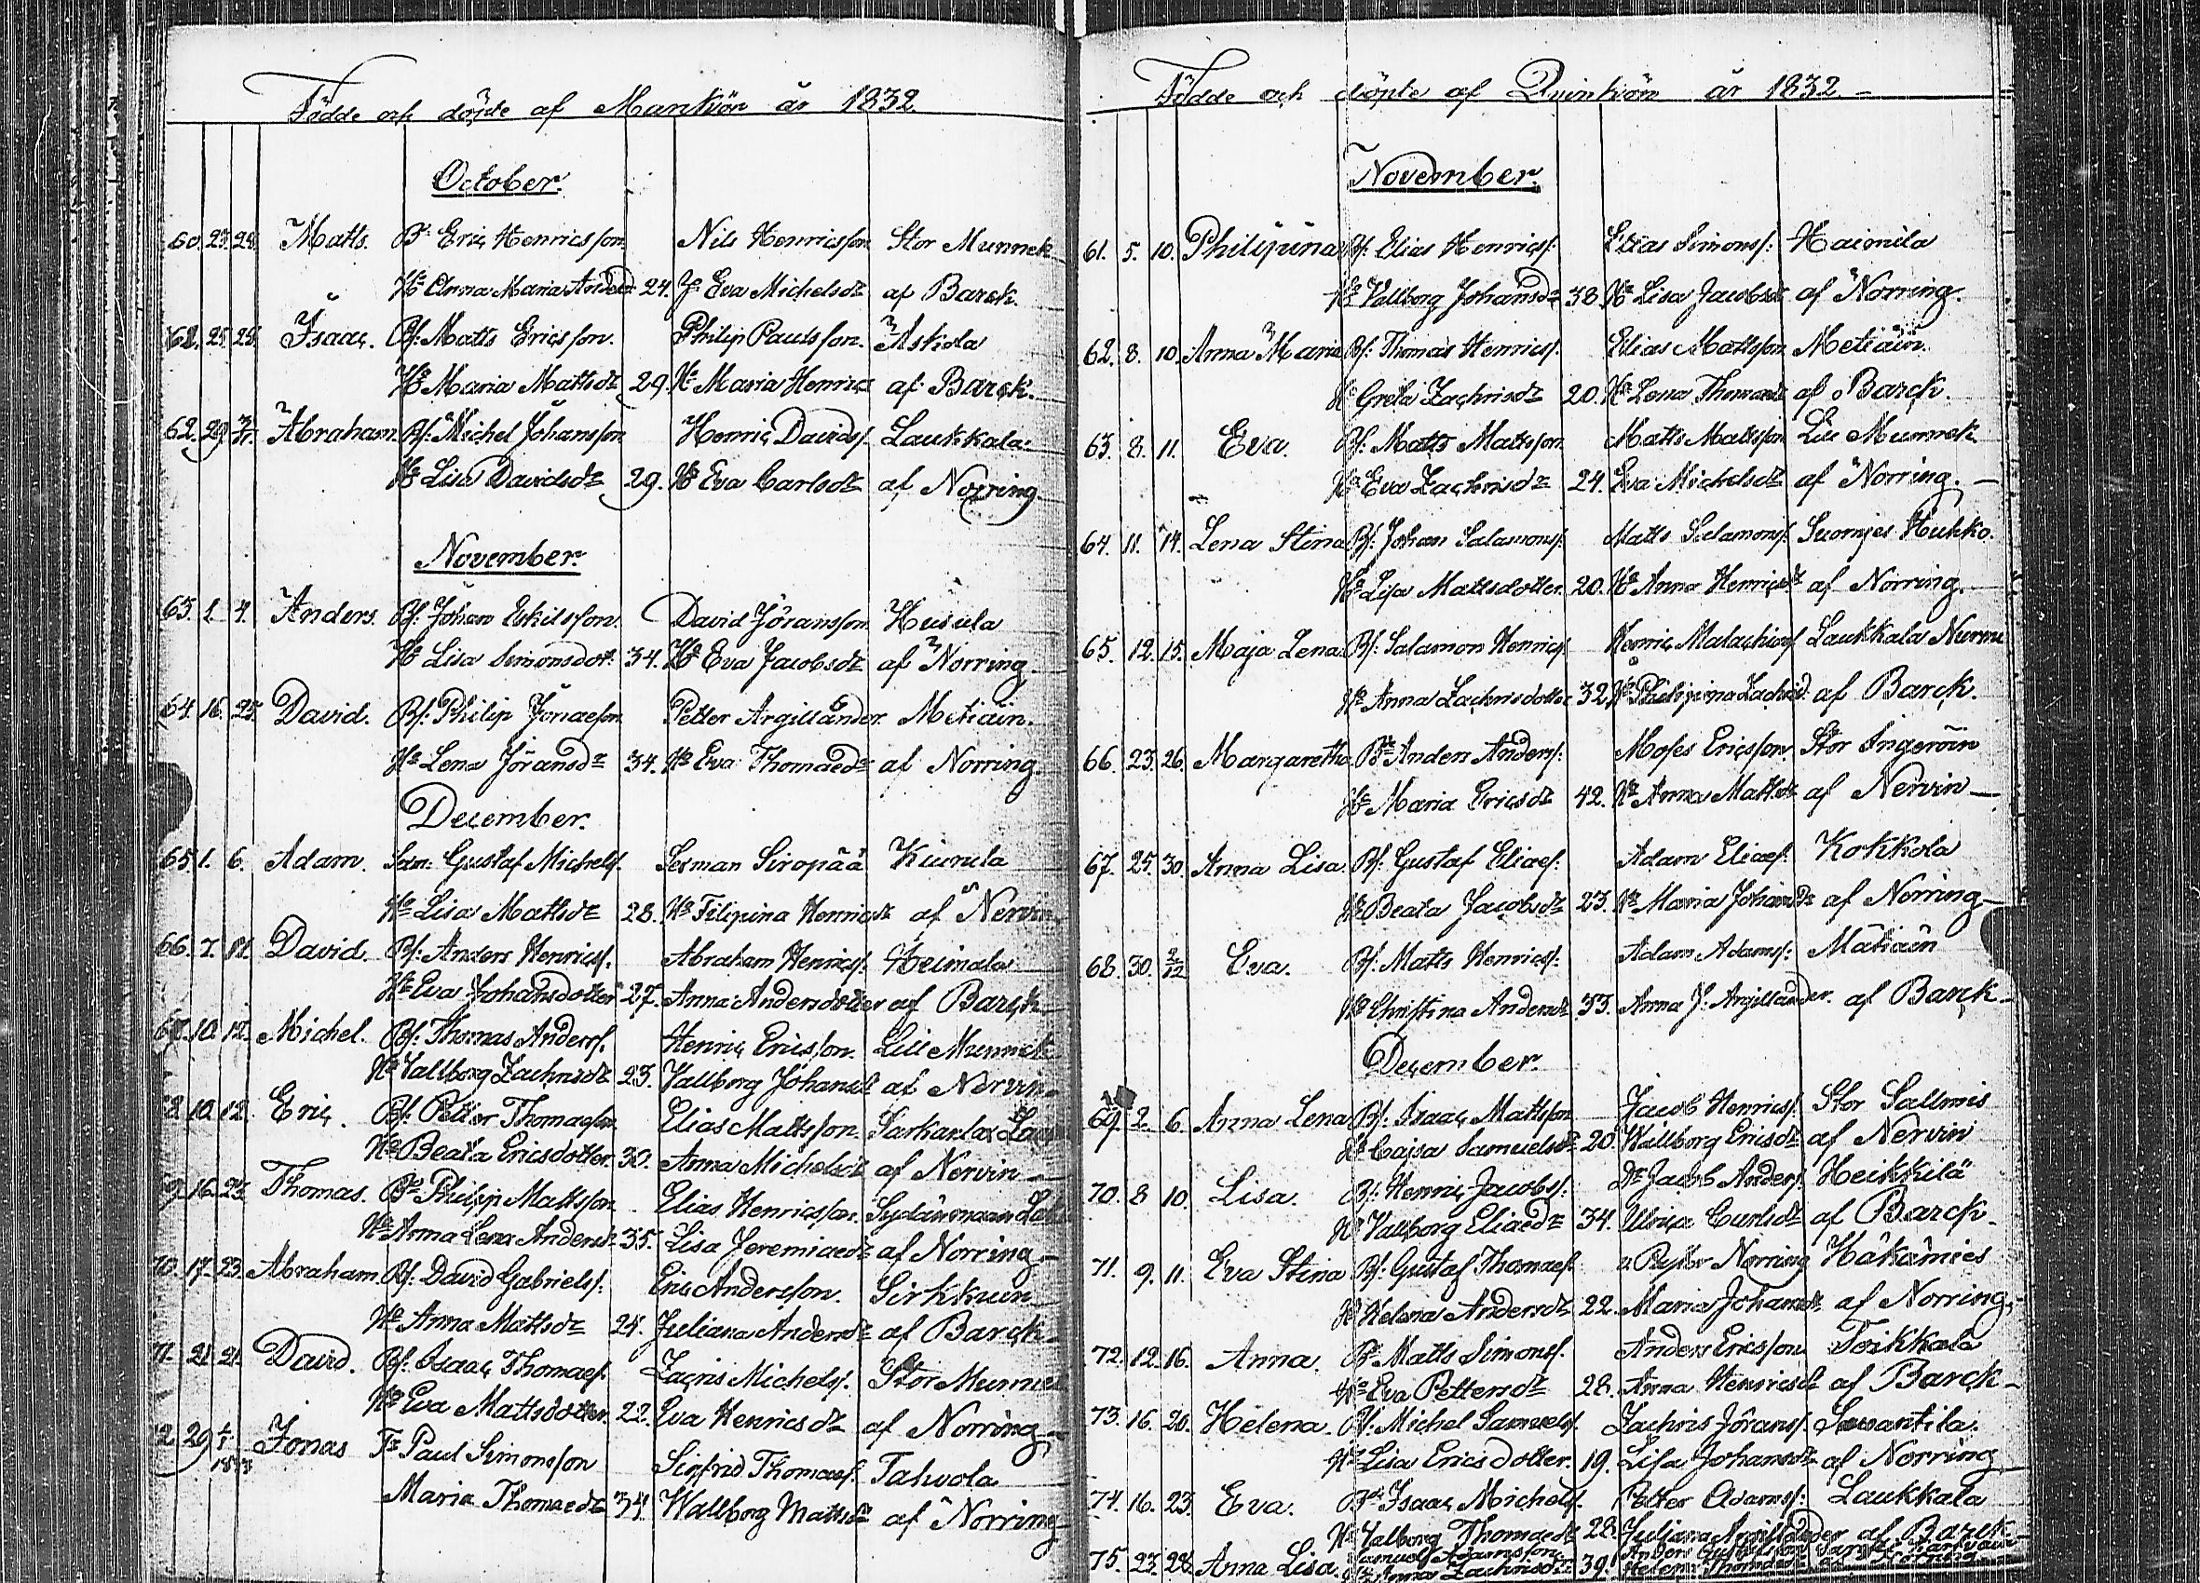 Födde och döpte af Mankön år 1832.
October.
60. 23. 28. Matts. B: Eric Henricsson Nils Henricsson Stor Munnek
Hu Anna Maria Andersd 24. J: Eva Michelsdr af Barck.
61. 25. 28. Isaac. Bf: Matts Ericsson. Philip Paulsson. Askola
Hu Maria Mattsdr 29. Hu Maria Henrics af Barck.
62. 29. Abraham. Bf: Michel Johansson Henric Davids. Laukkala.
Hu Lisa Davidsdr 29. Hu Eva Carlsdr af Norring.
November.
63. 1. 4. Anders. Bf: Johan Eskilsson. David Jöransson Husula
Hu Lisa Simonsdot: 34. Hu Eva Jacobsdr af Norring.
64. 16. 25. David. Bf: Philip Petter Argillander. Metiäin.
Hu Lena Jöransdr 34. Hu Eva Thomaedr af Norring.
December.
65. 1. 6. Adam. Gustaf Michels. Herman Siropää
Hu Lisa Mattsdr 28. Hu Filipina Henricsdr af Nervin
66. 7. 11. David. Bf: Anders Henrics. Abraham Henrics. Heimala
Hu Eva Johansdotter 27. Anna Andersdotter af Barck
67. 10. 12. Michel. Bf: Thomas Anders. Henric Ericsson. Lill Munnek
Hu Vallborg Zachrisdr 23. Vallborg Johansdr af Nervin
68. 10. 12. Eric. Bf: Petter Thomasson Elias Mattsson. Sarkarlax
Hu Beata Ericsdotter 30. Anna Michelsdr af Nervin
69. 16. 23. Thomas. Bf: Philip Mattsson Elias Henricsson. Sydänmaan
Hu Anna Lena Andersdr 35. Lisa Jeremiaedr af Norring
70. 17. 23. Abraham. Bf: David Gabriels: Eric Andersson. Sirkkuin
Hu Anna Mattsdr 24. Juliana Andersdr af Barck
71. 21. 21. David. Bf: Isaac Thomaes. Zacris Michels. Stor Munnek
Hu Eva Mattsdotter 22. Eva Henricsdr af Norring
72. 29. 1/1 1833 Jonas Paul Simonsson Sigfrid Thomaes. Tahvola
Maria Thomaedr 34. Wallborg Mattsdr af Norring
Födde och döpte af Quinkön år 1832.
November.
61. 5. 10. Philipina Bf: Elias Henrics: Elias Simons: Haimila
Hu Vallborg Johansdr 38. Hu Lisa Jacobsdr af Norring.
62. 8. 10. Anna Maria Bf: Thomas Henrics: Elias Mattsson Metiäin.
Hu Greta Zachrisdr 20. Hu Lena Thomaedr af Barck.
63. 8. 11. Eva. Bf: Matts Mattsson Matts Mattsson Lill Munnek
Hu Eva Zachrisdr 24. Eva Michelsdr af Norring.
64. 11. 14. Lena Stina Bf: Johan Salamons: Matts Salamons. Suornjes Hukko.
Hu Lisa Mattsdotter 20. Hu Anna Henricsdr af Norring.
65. 12. 15. Maja Lena. Bf: Salamon Henrics. Henric Malachias Laukkala Nurm
Hu Anna Zachrisdotter 32. Hu Philipina Zachrisd. af Barck.
66. 23. 26. Margaretha. Bf: Anders Anders: Moses Ericsson. Stor Ingeroin
Hu Maria Ericsdr 42. Hu Anna Mattsdr af Nervin
67. 25. 30. Anna Lisa. Bf: Gustaf Elias: Adam Elias. Kokkola
Hu Beata Jacobsdr 23. Hu Maria Johansdr af Norring
68. 30. 2/12 Eva. Bf: Matts Henrics: Adam Adams: Mätiäin
Hu Christina Andersdr 33. Anna J: Argillander. af Barck
December.
69. 2. 6. Anna Lena Bf: Isaac Mattsson Jacob Henrics. Stor Sallmis
Hu Cajsa Samuelsdr 20. Wallborg Ericsdr af Nervin
70. 8. 10. Lisa. Bf: Henric Jacobs: Jacob Anders. Heikkilä
Hu Vallborg Eliaedr 34. Ulrica Carlsdr af Barck.
71. 9. 11. Eva Stina Bf: Gustaf Thomaes. Norring Häkämies
Hu Helena Andersdr 22. Maria Johansdr af Norring.
72. 12. 16. Anna. Bf: Matts Simons. Anders Ericsson Toikkala
Hu Eva Pettersdr 28. Anna Henricsdr af Barck
73. 16. 20. Helena. Bf: Michel Samuels. Zachris Jörans. Suvantila.
Hu Lisa Ericsdotter. 19. Lisa Johansdr af Norring
74. 16. 23. Eva. Bf: Isaac Michels. Petter Adams: Laukkala
Hu Valborg Thomaedr 28. Juliana Argillander af Barck
75. 23. 28. Anna Lisa. Samuel Adamsson Anders
Hu Anna Zachrisdr 39. Helena Thomaedr af Norring